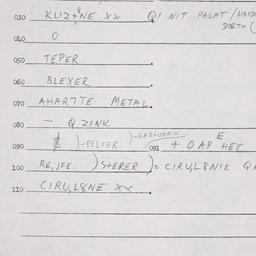 030 KUZ$NE XX Q! NIT PALAT/
040 0
050 TEPER
060 BLEXER
070 AHARTTE METAL.
080 — Q ZINK
090 $ )-PELCER 092 + OAP HEC
100 RE, SFE ) STERER ) = CIRU,L8NIK
110 CIRU,L8NE XX.